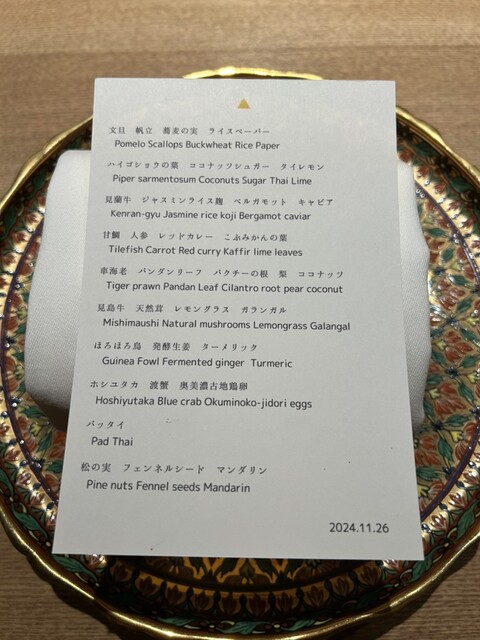 文旦 帆立 蕎麦の実 ライスペーパー
Pomelo Scallops Buckwheat Rice Paper
ハイゴショウの葉 ココナッツシュガー タイレモン
Piper sarmentosum Coconuts Sugar Thai Lime
見蘭牛 ジャスミンライス麹 ベルガモット キャビア
Kenran-gyu Jasmine rice koji Bergamot caviar
甘鯛 人参 レッドカレー こぶみかんの葉
Tilefish Carrot Red curry Kaffir lime leaves
車海老 パンダンリーフ パクチーの根 梨 ココナッツ
Tiger prawn Pandan Leaf Cilantro root pear coconut
見島牛 天然茸 レモングラス ガランガル
Mishimaushi Natural mushrooms Lemongrass Galangal
ほろほろ鳥 発酵生姜 ターメリック
Guinea Fowl Fermented ginger Turmeric
ホシユタカ 渡蟹 奥美濃古地鶏卵
Hoshiyutaka Blue crab Okuminoko-jidori eggs
パッタイ
Pad Thai
松の実 フェンネルシード マンダリン
Pine nuts Fennel seeds Mandarin
2024.11.26